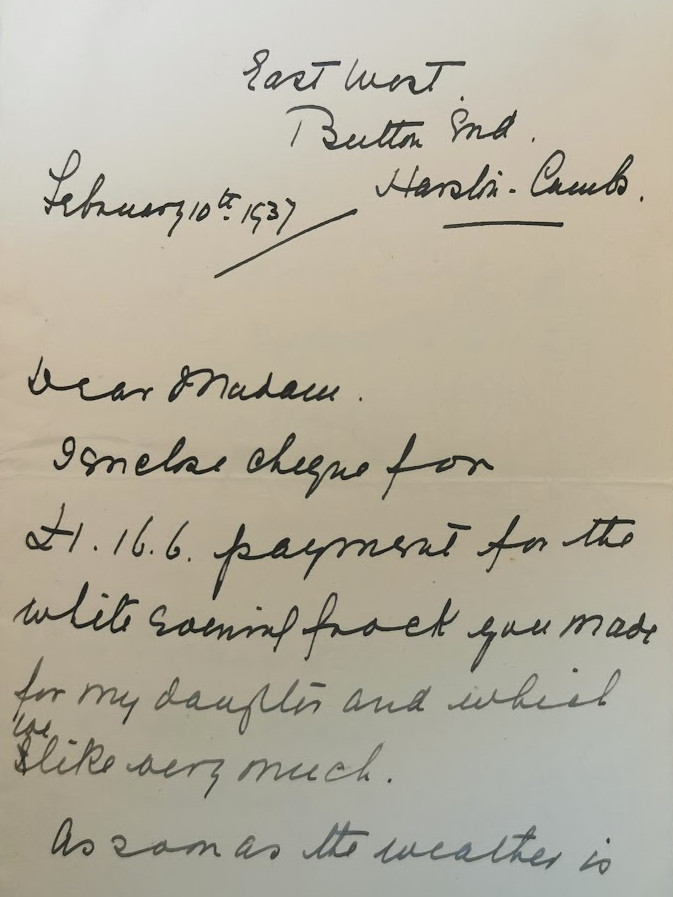 East West.
Button End.
Harston - Cambs.
February 10th. 1937
Dear Madam.
I enclose cheque for
£1.16.6. payment for the
white evening frock you made
for my daughter and which
we
like very much.
As soon as the weather is